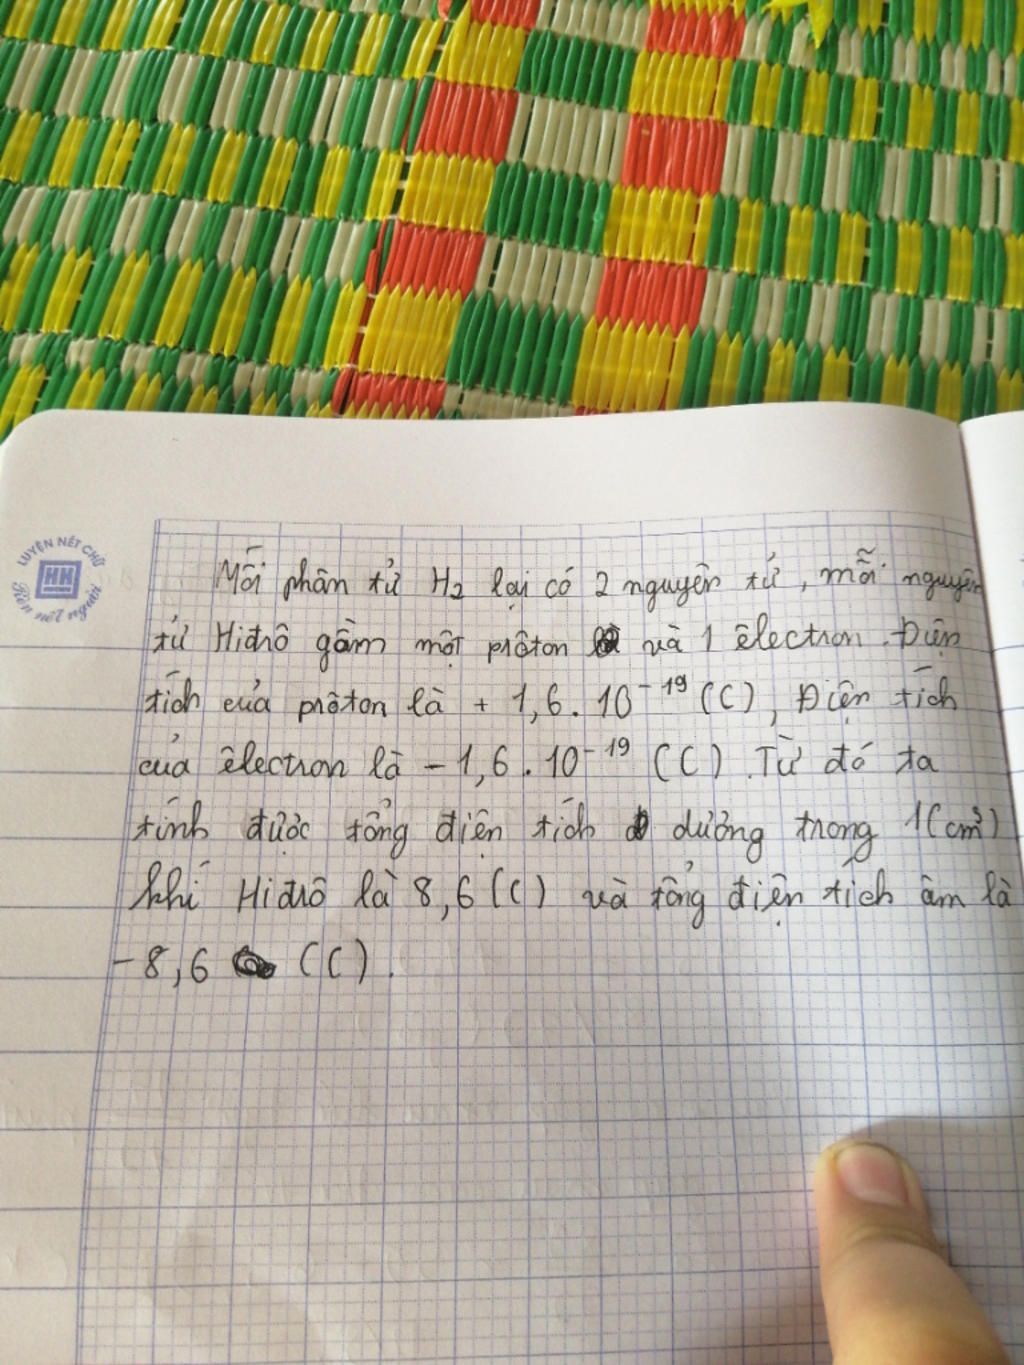 LUYỆN NÉT CHỮ
HH
Rèn nết người
Mỗi phân tử H₂ lại có 2 nguyên tử, mỗi nguyên
tử Hiđrô gồm một prôton và 1 êlectron. Điện
tích của prôton là + 1,6 . 10⁻¹⁹ (C), Điện tích
của êlectron là – 1,6 . 10⁻¹⁹ (C). Từ đó ta
tính được tổng điện tích dương trong 1(cm³)
khí Hiđrô là 8,6 (C) và tổng điện tích âm là
-8,6 (C).